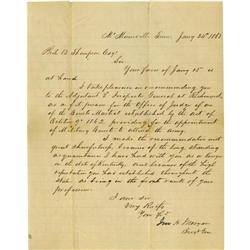 McMinnville Tenn Jany 24th 1863
Phil B Thompson Esqr
Sir
Your favor of Jany 15th is
at hand
I take pleasure in recommending you
to the Adjutant & Inspector General at Richmond,
as a fit person for the Office of Judge of one
of the Courts Martial established by the act of
October 9th 1862, for the appointment
of Military Courts to attend the army.
I make the recommendation with
great cheerfulness because of the long standing
acquaintance I have had with you as a lawyer
in the state of Kentucky, and because of the high
reputation you has established throughout the
state as being in the front rank of your
profession.
I am Sir
Very Resptfy
Your
Jno H Morgan